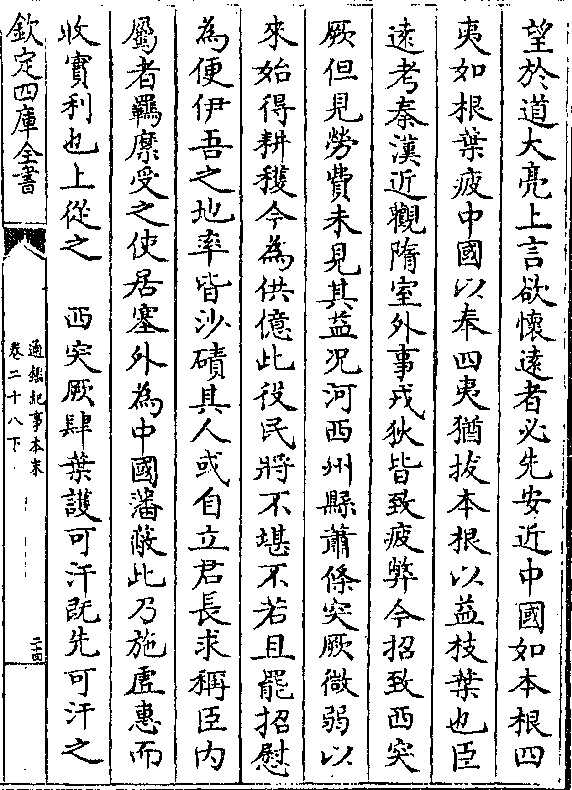 望於道大亮上言欲懷遠者必先安近中國如本根四
夷如根葉疲中國以奉四夷猶拔本根以益枝葉也臣
遠考秦漢近觀隋室外事戎狄皆致疲弊今招致西突
厥但見勞費未見其益况河西州縣蕭條突厥微弱以
來始得耕穫今為供億此役民將不堪不若且罷招慰
為便伊吾之地率皆沙磧其人或自立君長求稱臣内
屬者羈縻受之使居塞外為中國藩蔽此乃施虚惠而
收實利也上從之　西突厥肆葉護可汗既先可汗之
欽定四庫全書
通鑑紀事本末
卷二十八下
二十四